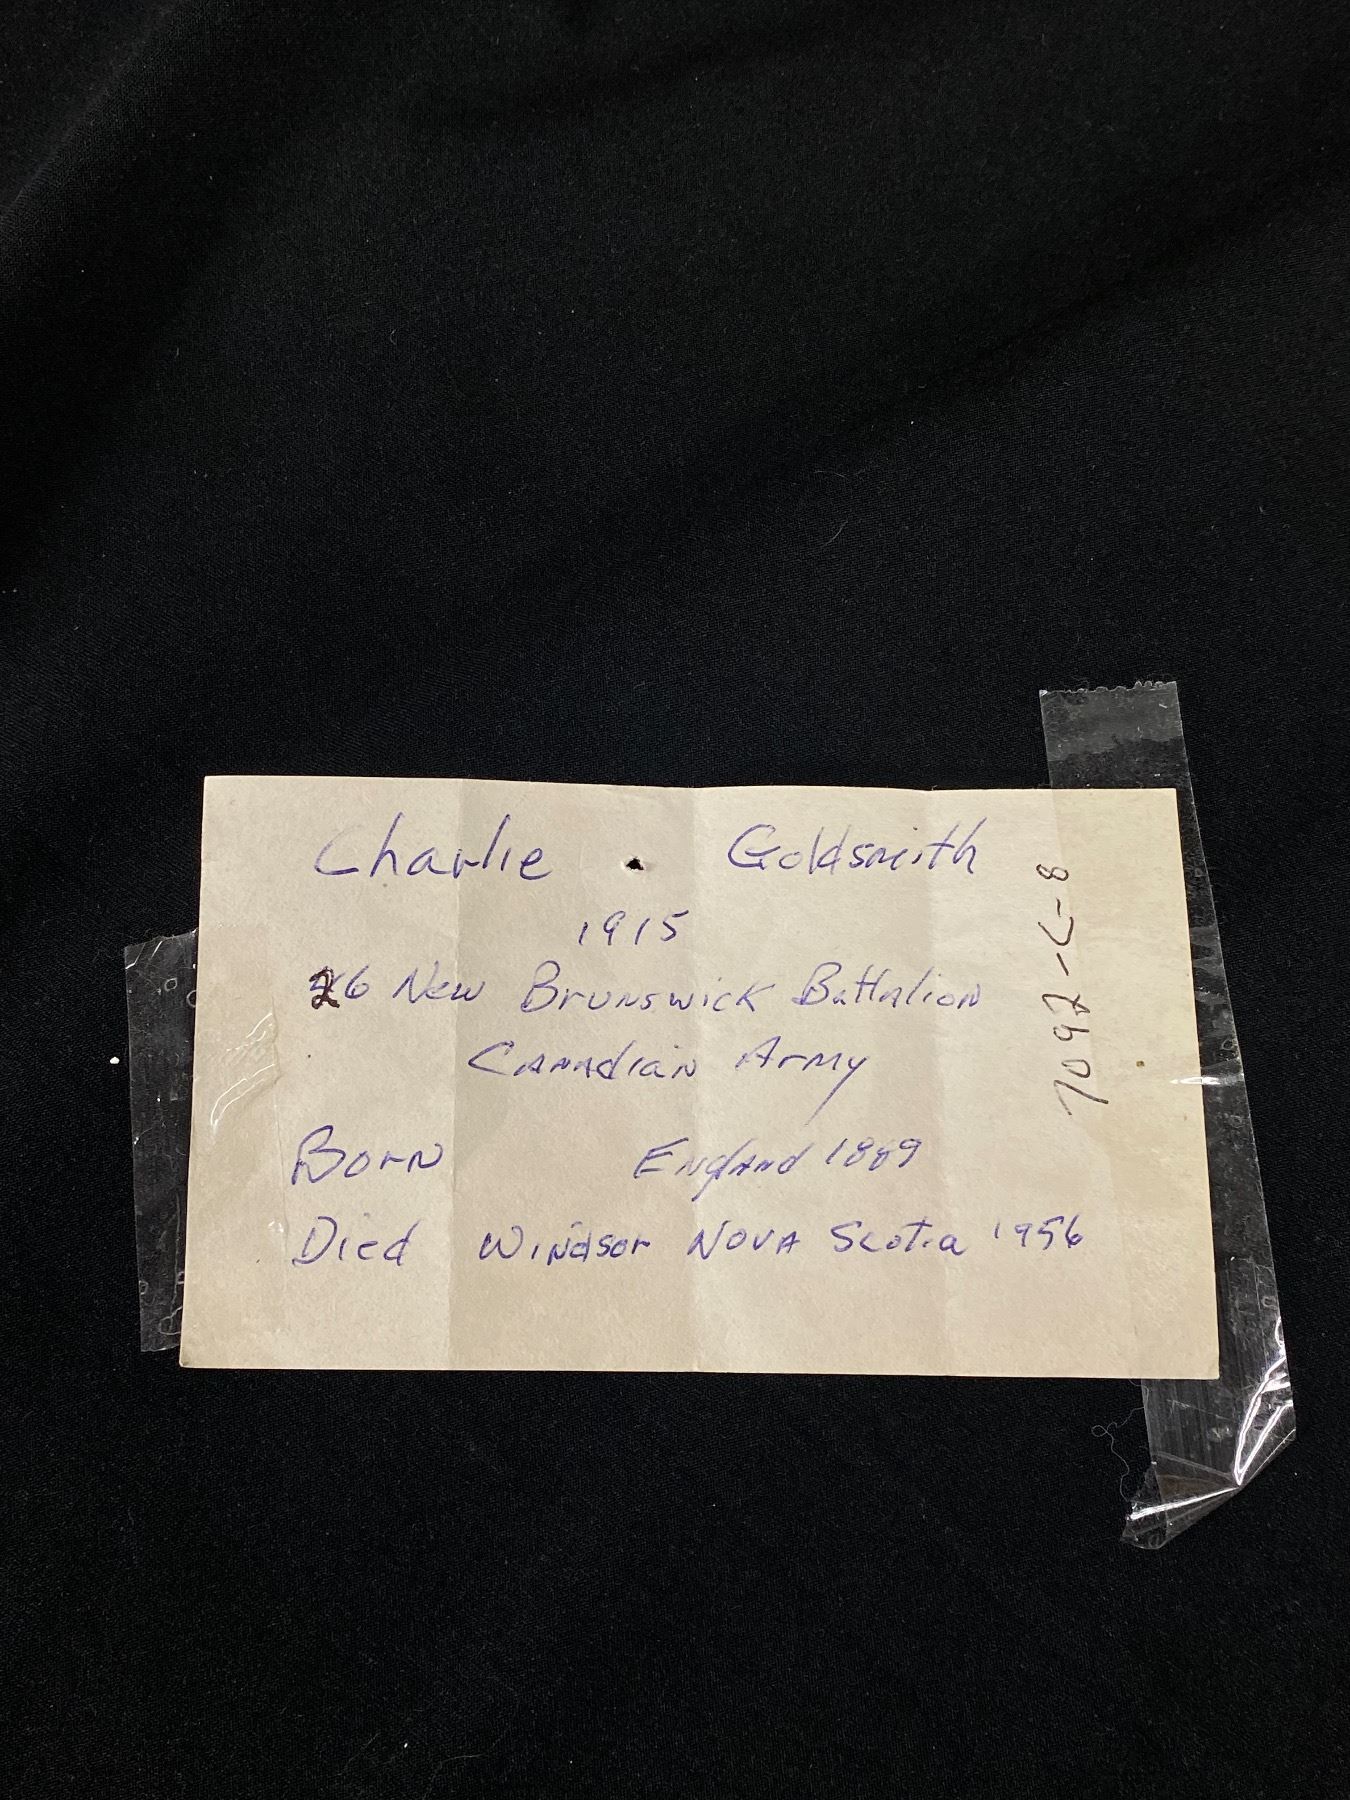 Charlie Goldsmith
1915
26 New Brunswick Battalion
Canadian Army
Born England 1889
Died Windsor Nova Scotia 1956
7092-C-8